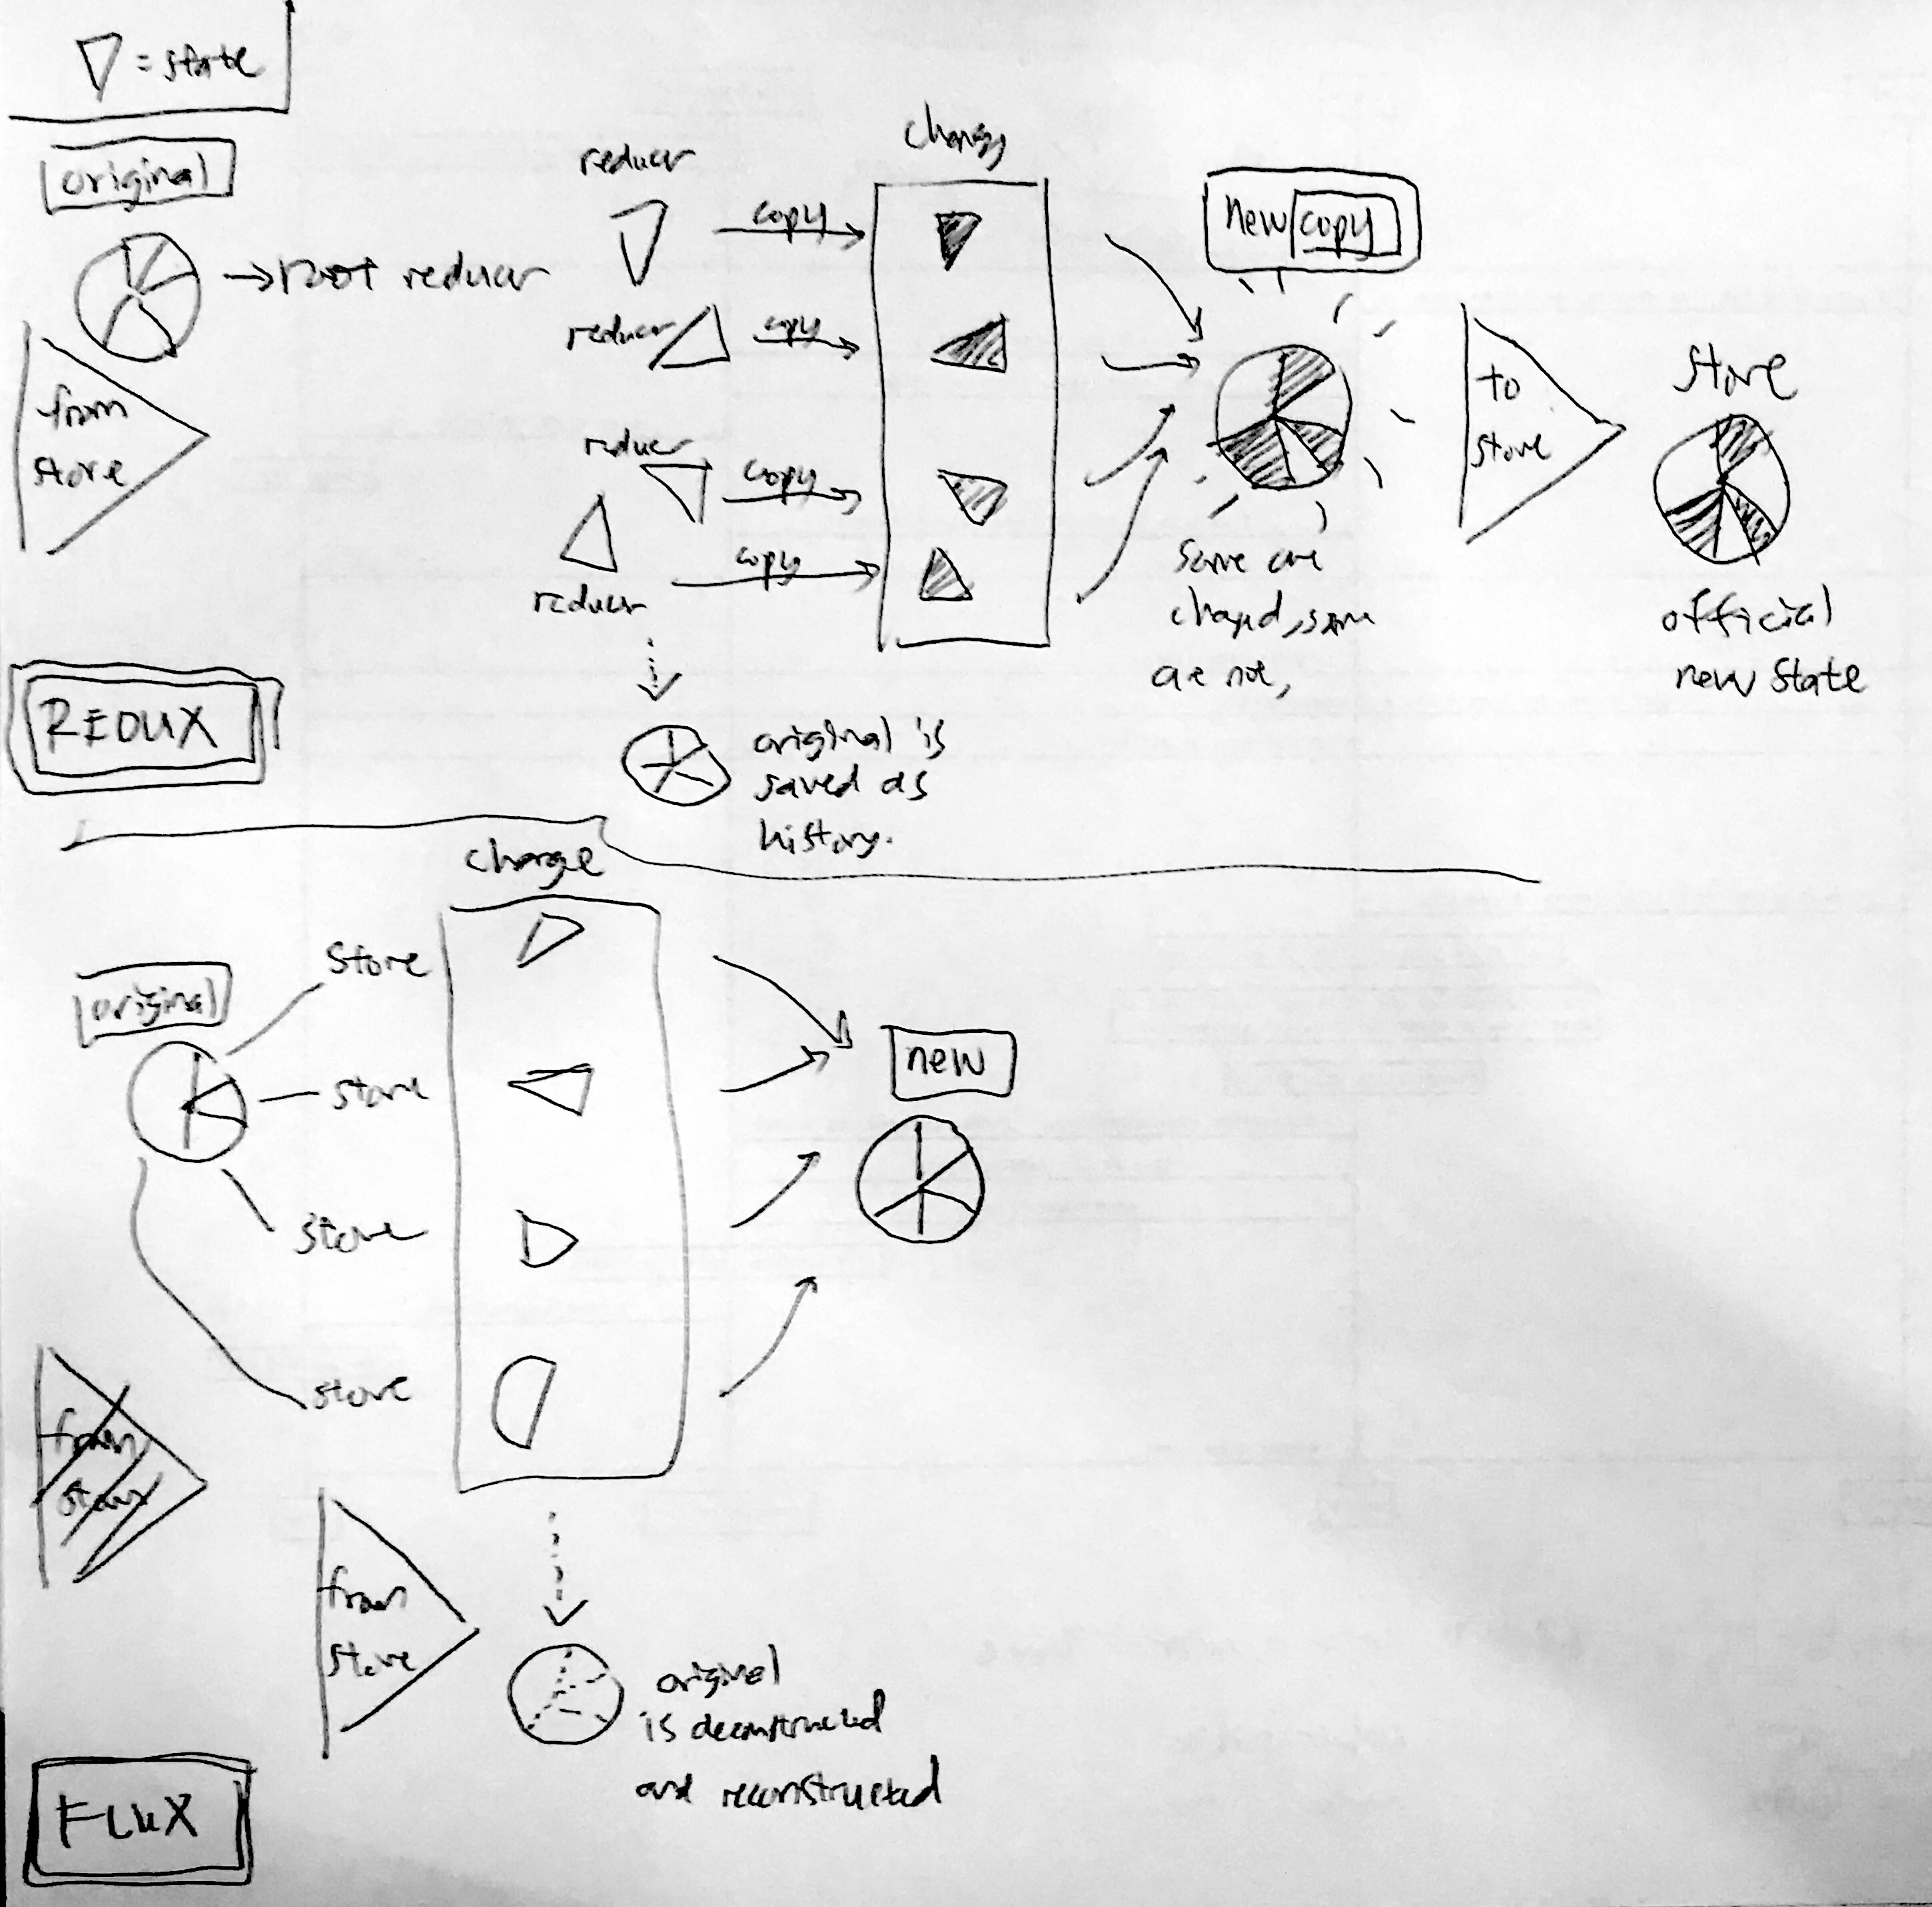 = state
original
→ root reducer
from
store
reducer
copy
reducer
copy
reducer
copy
reducer
copy
change
new copy
some are
changed, some
are not,
to
store
store
official
new state
REDUX
original is
saved as
history.
change
original
store
store
store
store
new
from
store
from
store
original
is deconstructed
and reconstructed
FLUX